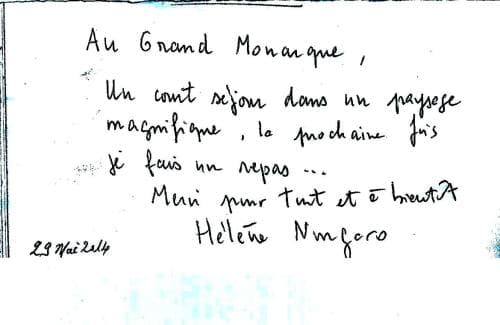 Au Grand Monarque,
Un court séjour dans un paysage
magnifique, la prochaine fois
je fais un repas...
Merci pour tout et à bientôt
Hélène
29 Mai 2014